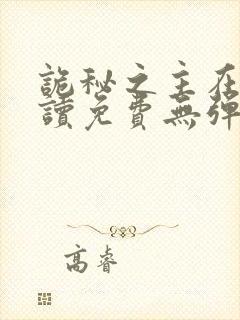 詭秘之主在
讀免費無彈
高睿